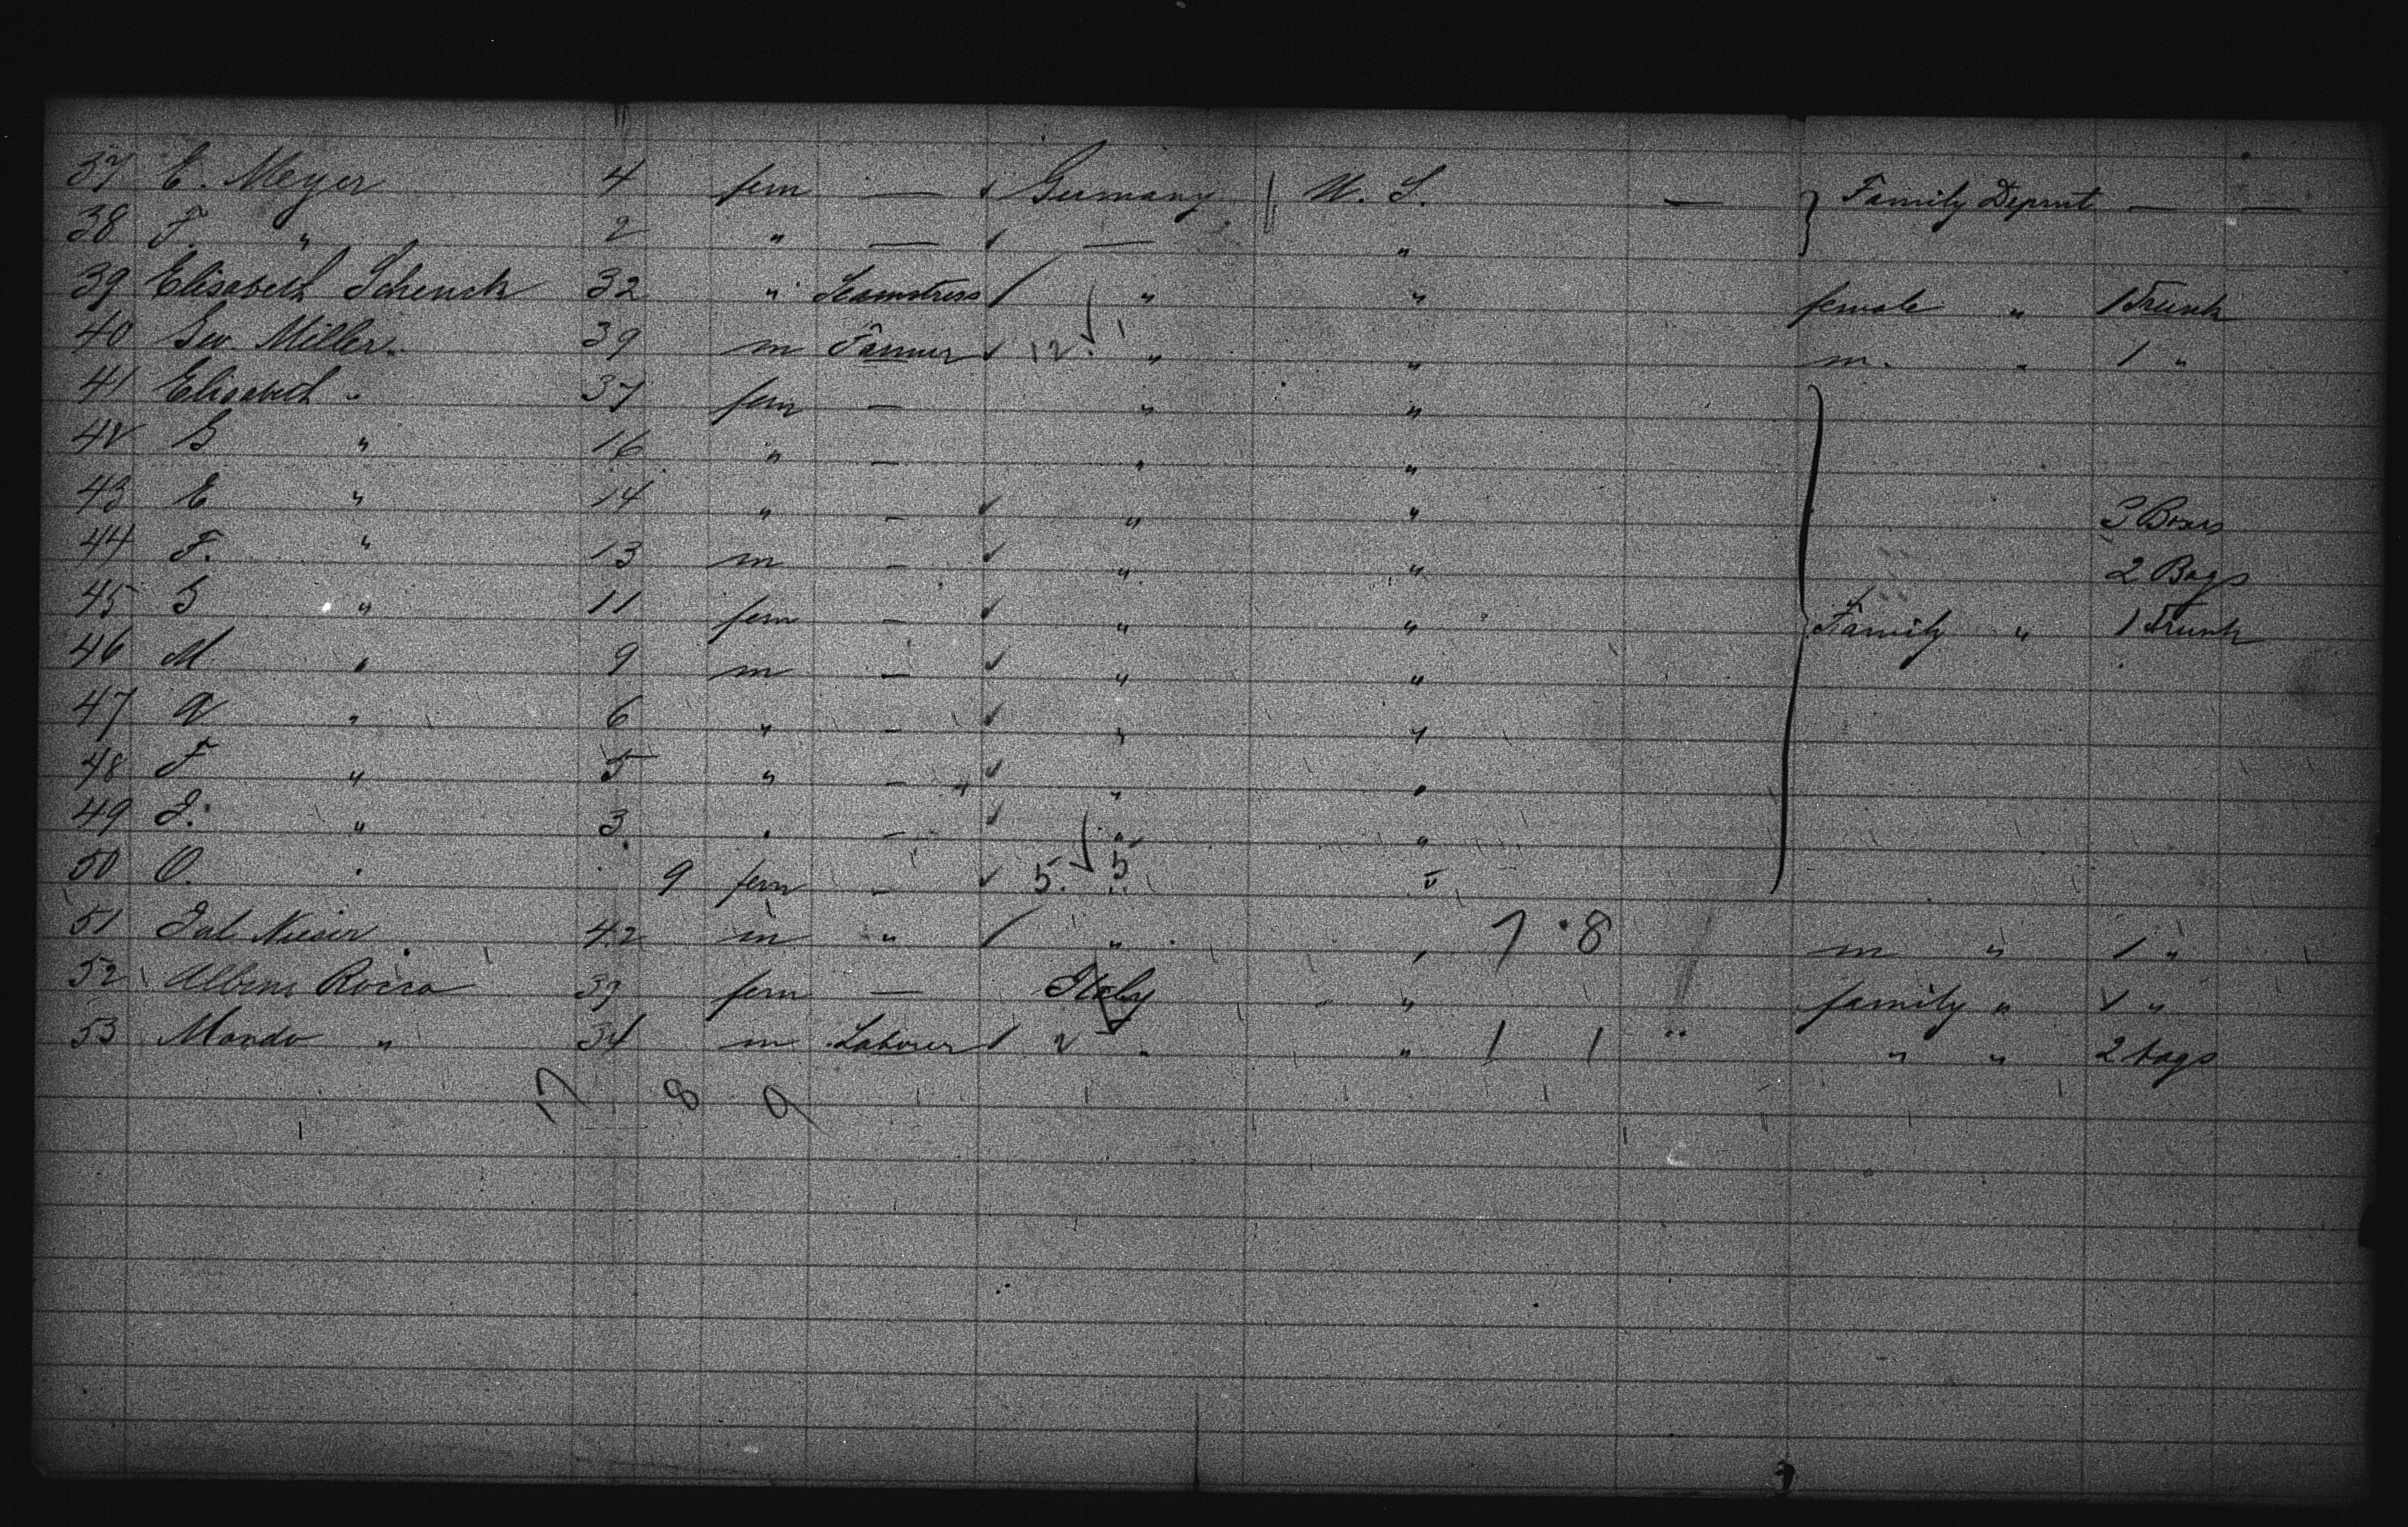 37 E. Meyer 4 fem — Germany U. S. — Family Deprnt — —
38 F. " 2 " — — "
39 Elisabeth Schenck 32 " Seamstress " " female " 1 Trunk
40 Miller 39 m Farmer 12 " " m. " 1 "
41 Elisabeth " 37 fem — " "
42 G " 16 " — " "
43 E " 14 " — " " 3 Boxes
44 F. " 13 m — " " 2 Bags
45 G " 11 fem — " " Family " 1 Trunk
46 M " 9 m — " "
47 A " 6 " — " "
48 F " 5 " — " "
49 J. " 3 " — " "
50 O. " 9 fem — 5. 5 "
51 42 m " " " 7 8 m " 1 "
52 Rocco 33 fem — Italy " family " 1 "
53 Mondo " 34 m Laborer 2 " " 1 1 " " " 2 bags
17 8 9